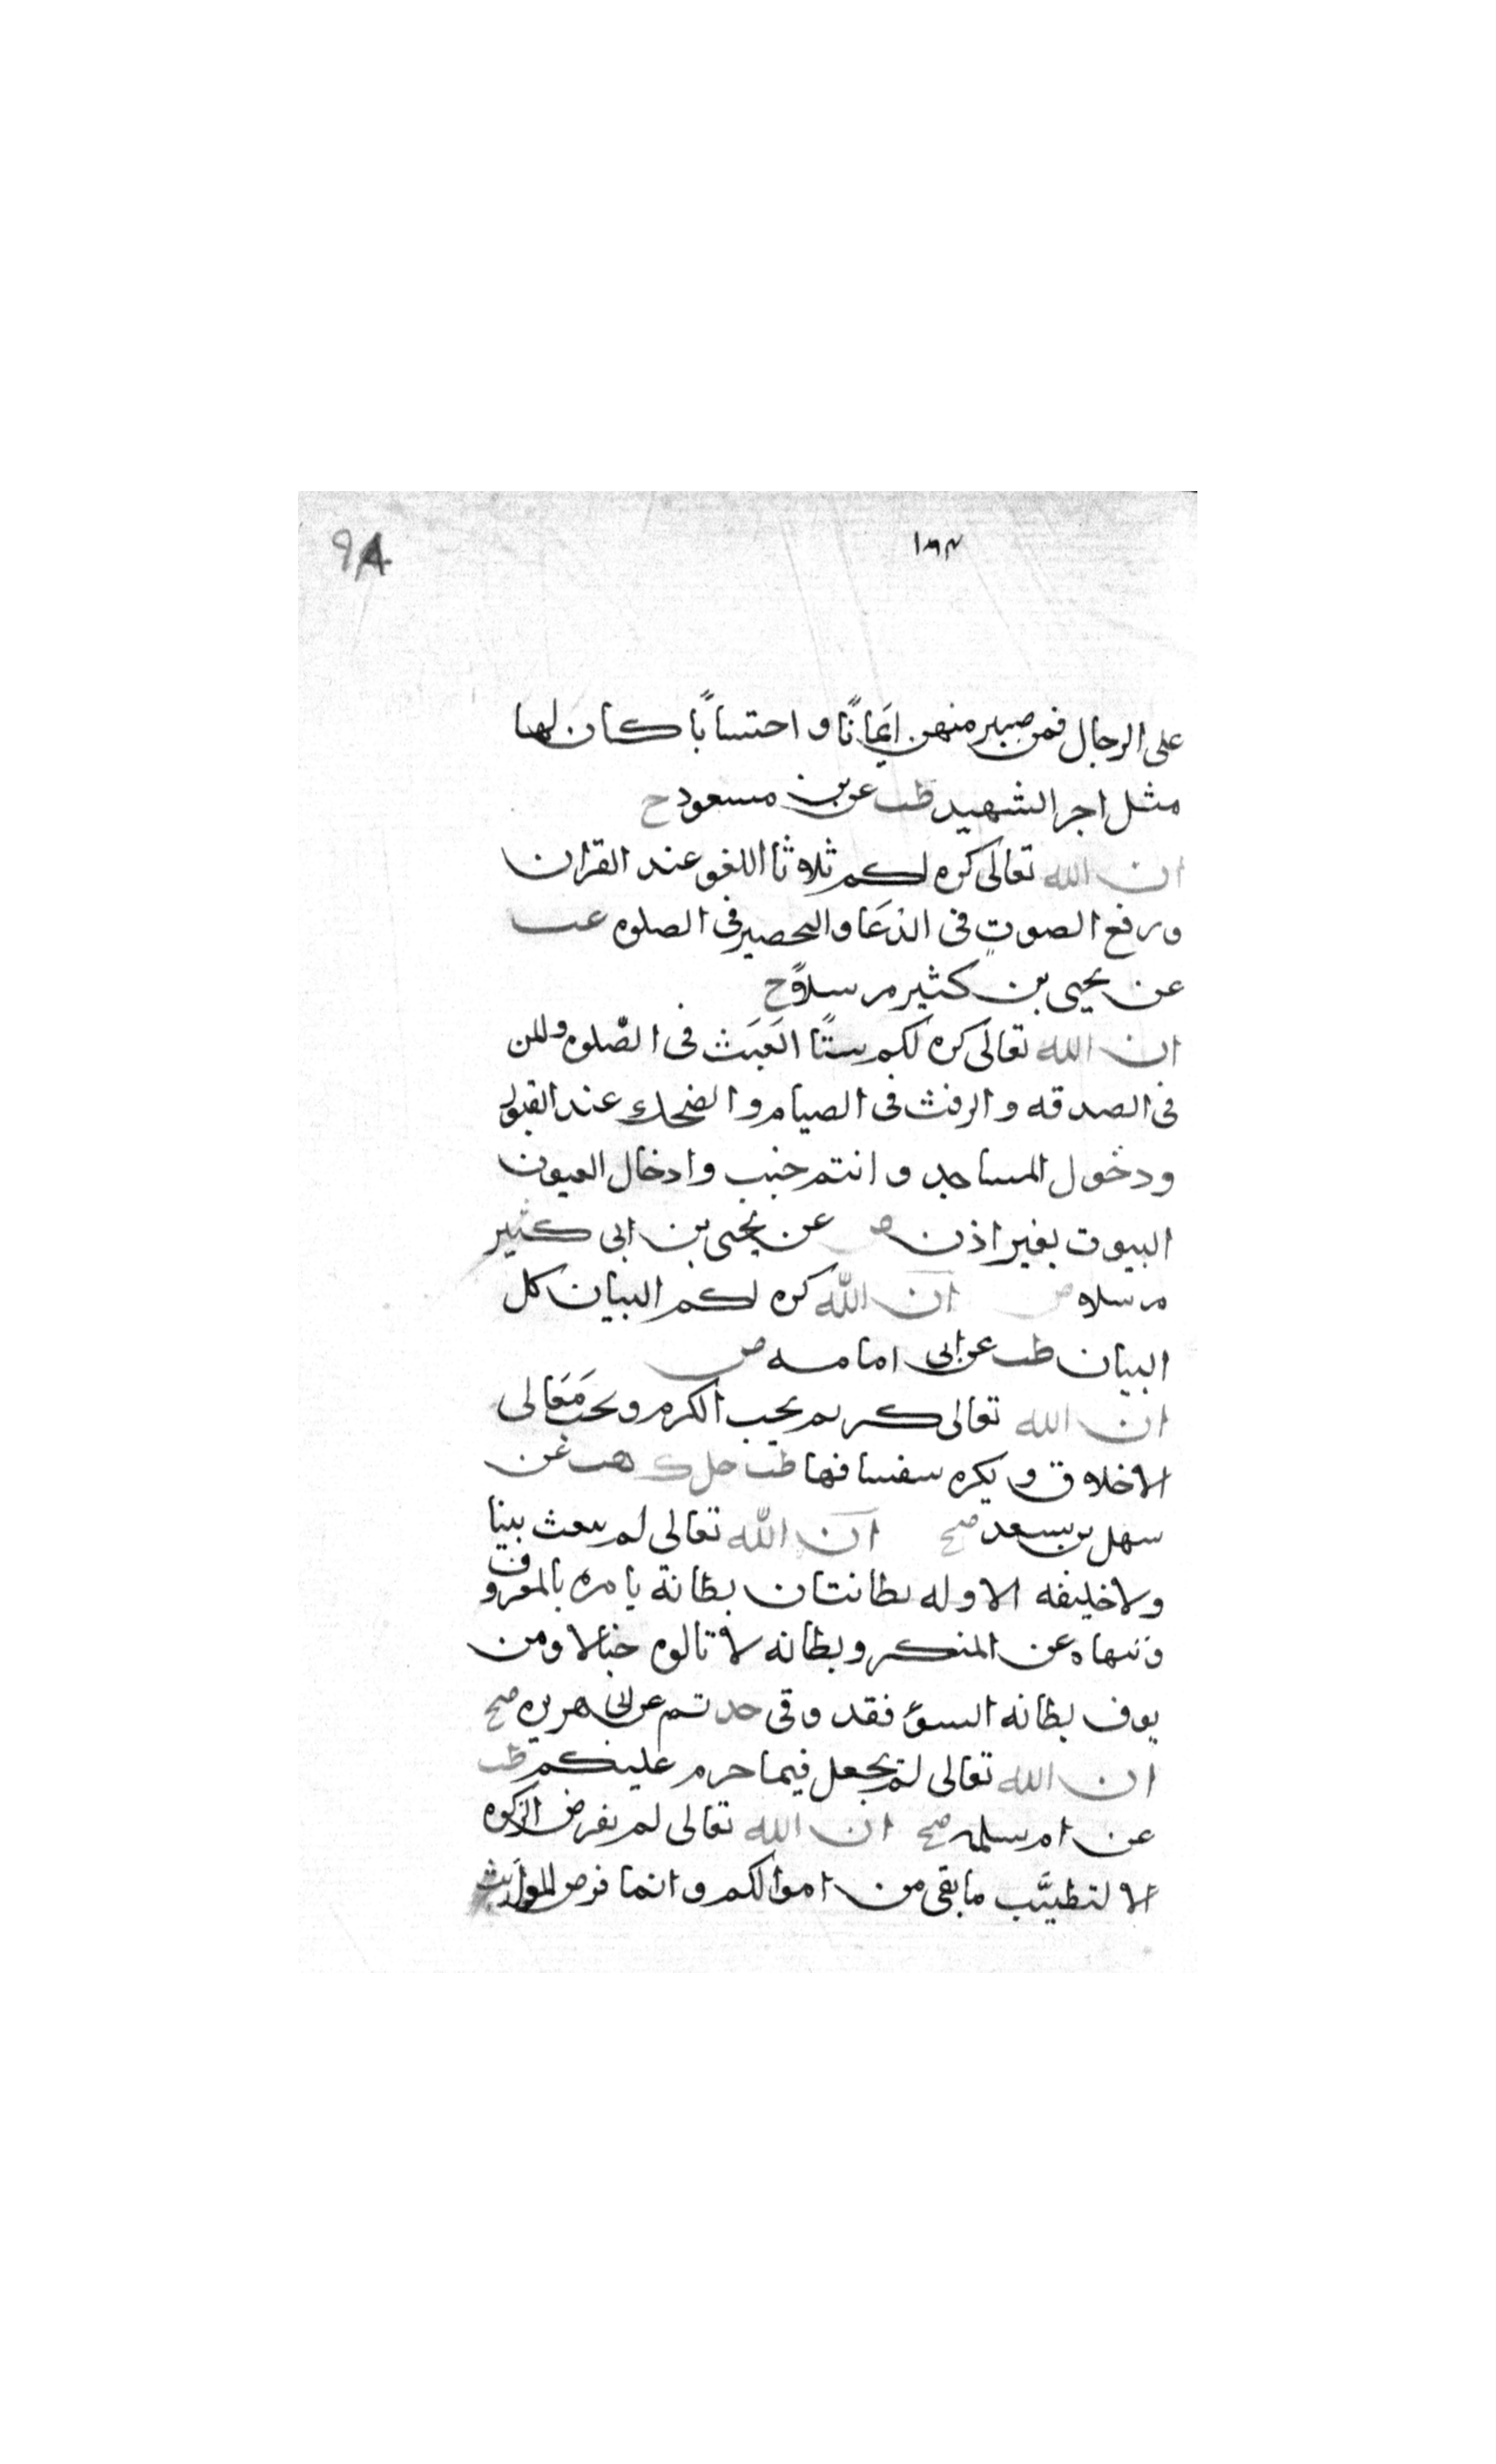 ١٩٣ ٩٨
على الرجال فمن صبر منهن ايمانًا و احتسابًا كان لها
مثل اجر الشهيد طب عن بن مسعود ح
ان الله تعالى كره لكم ثلاثا اللغو عند القران
ورفع الصوت فى الدعا و التحصير فى الصلوه عب
عن يحيى بن كثير مرسلا ح
ان الله تعالى كره لكم ستًا العَبَث فى الصّلوه والمن
فى الصدقه و الرفث فى الصيام و الضحك عند القبول
ودخول المساجد و انتم جنب وادخال العيون
البيوت بغير اذن ص عن يحيى بن ابى كثير
مرسلا ض ان الله كره لكم البيان كل
البيان طب عن ابى امامه ض
ان الله تعالى كريم يحب الكرم ويحب مَعَالى
الاخلاق و يكره سفسافها طب حل ك هب عن
سهل بن سعد صح ان الله تعالى لم يبعث نبيا
ولا خليفه الا وله بطانتان بطانة يامره بالمعروف
وتنهاه عن المنكر و بطانه لا تالوه خبالا ومن
يوق بطانه السوء فقد وقى خد تـ م عن ابى هريره صح
ان الله تعالى لم يجعل فيما حرم عليكم طب
عن ام سلمه صح ان الله تعالى لم يفرض الزكوه
الا لتطيّب ما بقى من اموالكم و انما فرض المواريث